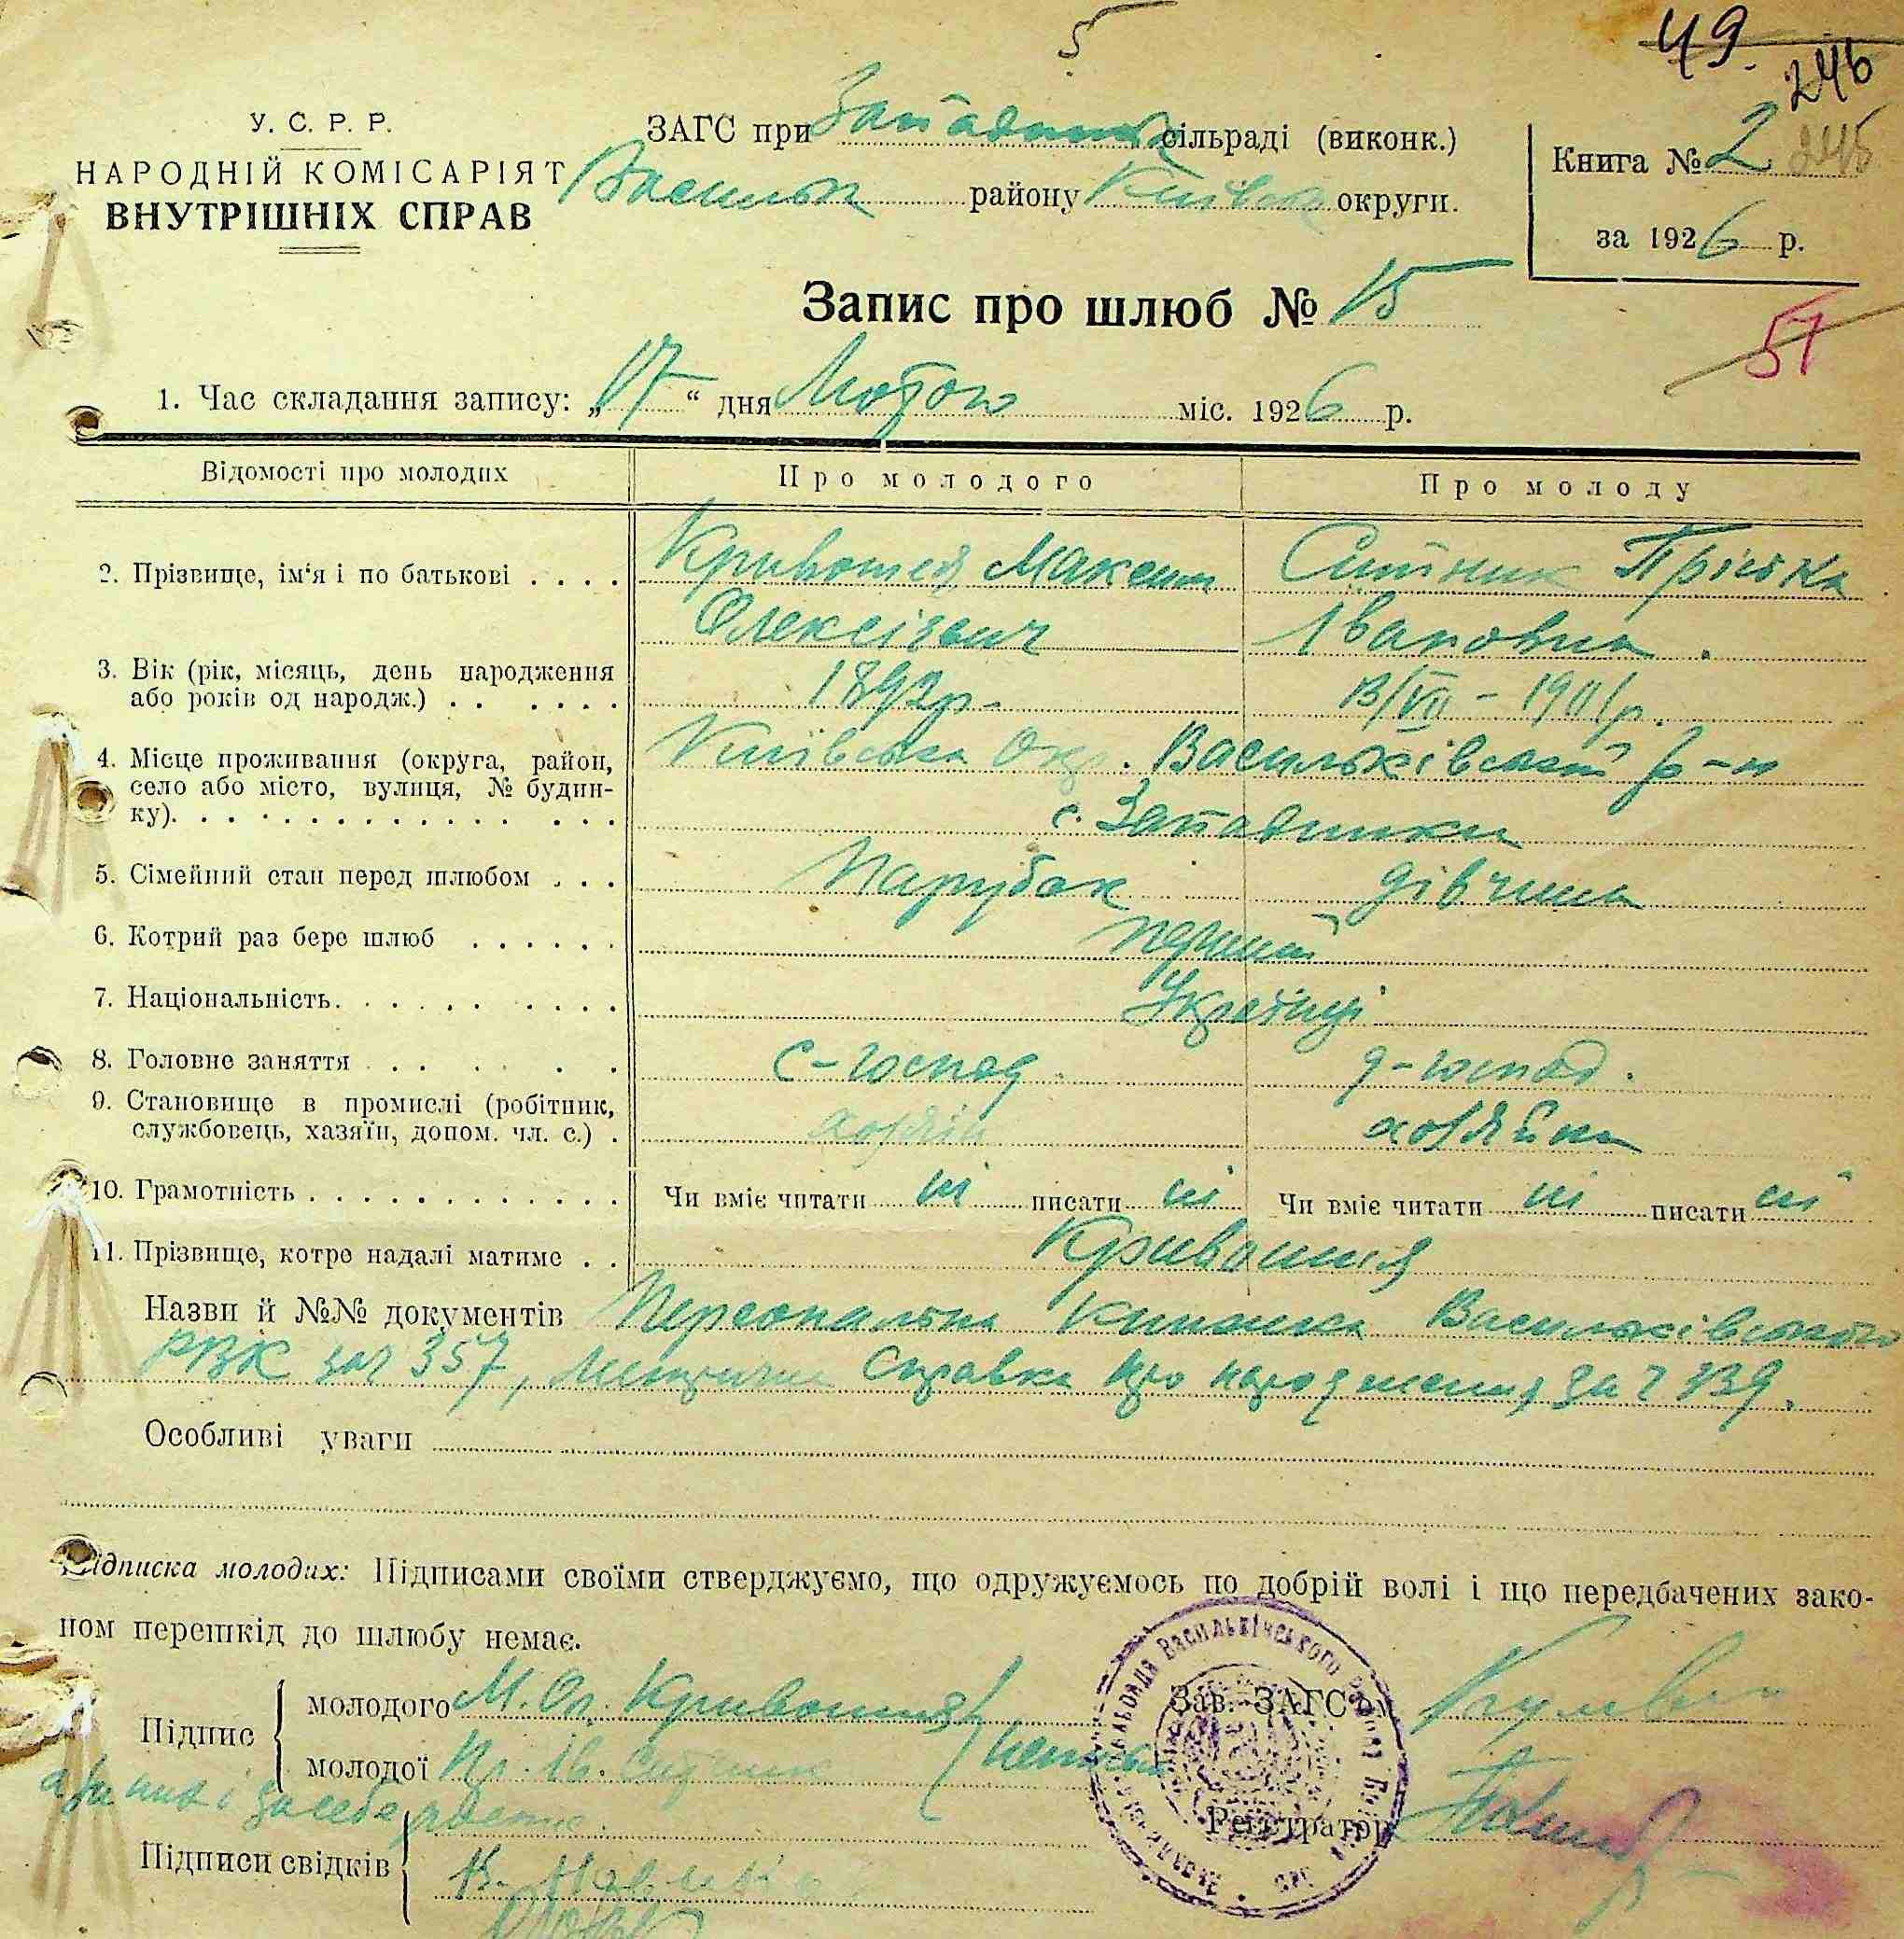 5
49.
246
У. С. Р. Р.
НАРОДНІЙ КОМІСАРІЯТ
ВНУТРІШНІХ СПРАВ
ЗАГС при сільраді (виконк.)
Васильк району Київськ округи.
Книга № 2 245
за 1926 р.
Запис про шлюб № 15
51
1. Час складання запису: „17“ дня Лютого міс. 1926 р.
Відомості про молодих
Про молодого
Про молоду
2. Прізвище, ім'я і по батькові . . . .
Кривошея Максим
Олексієвич
Ситник Пріська
Івановна .
3. Вік (рік, місяць, день народження
або років од народж.) . . . . . .
1892р.
13/VII – 1901р.
4. Місце проживання (округа, район,
село або місто, вулиця, № будин-
ку). . . . . . . . . . . . . . . .
Київська Окр. Васильківський р-н
с. Западинка
5. Сімейний стан перед шлюбом . . .
Парубок
дівчина
6. Котрий раз бере шлюб . . . . . .
перший
7. Національність. . . . . . . . .
Українці
8. Головне заняття . . . . . .
С-господ.
д-господ.
9. Становище в промислі (робітник,
службовець, хазяїн, допом. чл. с.) .
хозяїн
хозяйка
10. Грамотність . . . . . . . . . . . .
Чи вміє читати ні писати ні
Чи вміє читати ні писати ні
11. Прізвище, котре надалі матиме . .
Кривошия
Назви й №№ документів Персональна Книжка Васильківського
РВК за ч 357, Метрична Справка про народження за ч 739.
Особливі уваги
Підписка молодих: Підписами своїми стверджуємо, що одружуємось по добрій волі і що передбачених зако-
ном перешкід до шлюбу немає.
Підпис
молодого М. Ол. Кривошия
молодої Пр. Ів. Ситник
неписьм
а за них і за себе
Підписи свідків
Зав. ЗАГС'ом
Регістратор
Васильківського